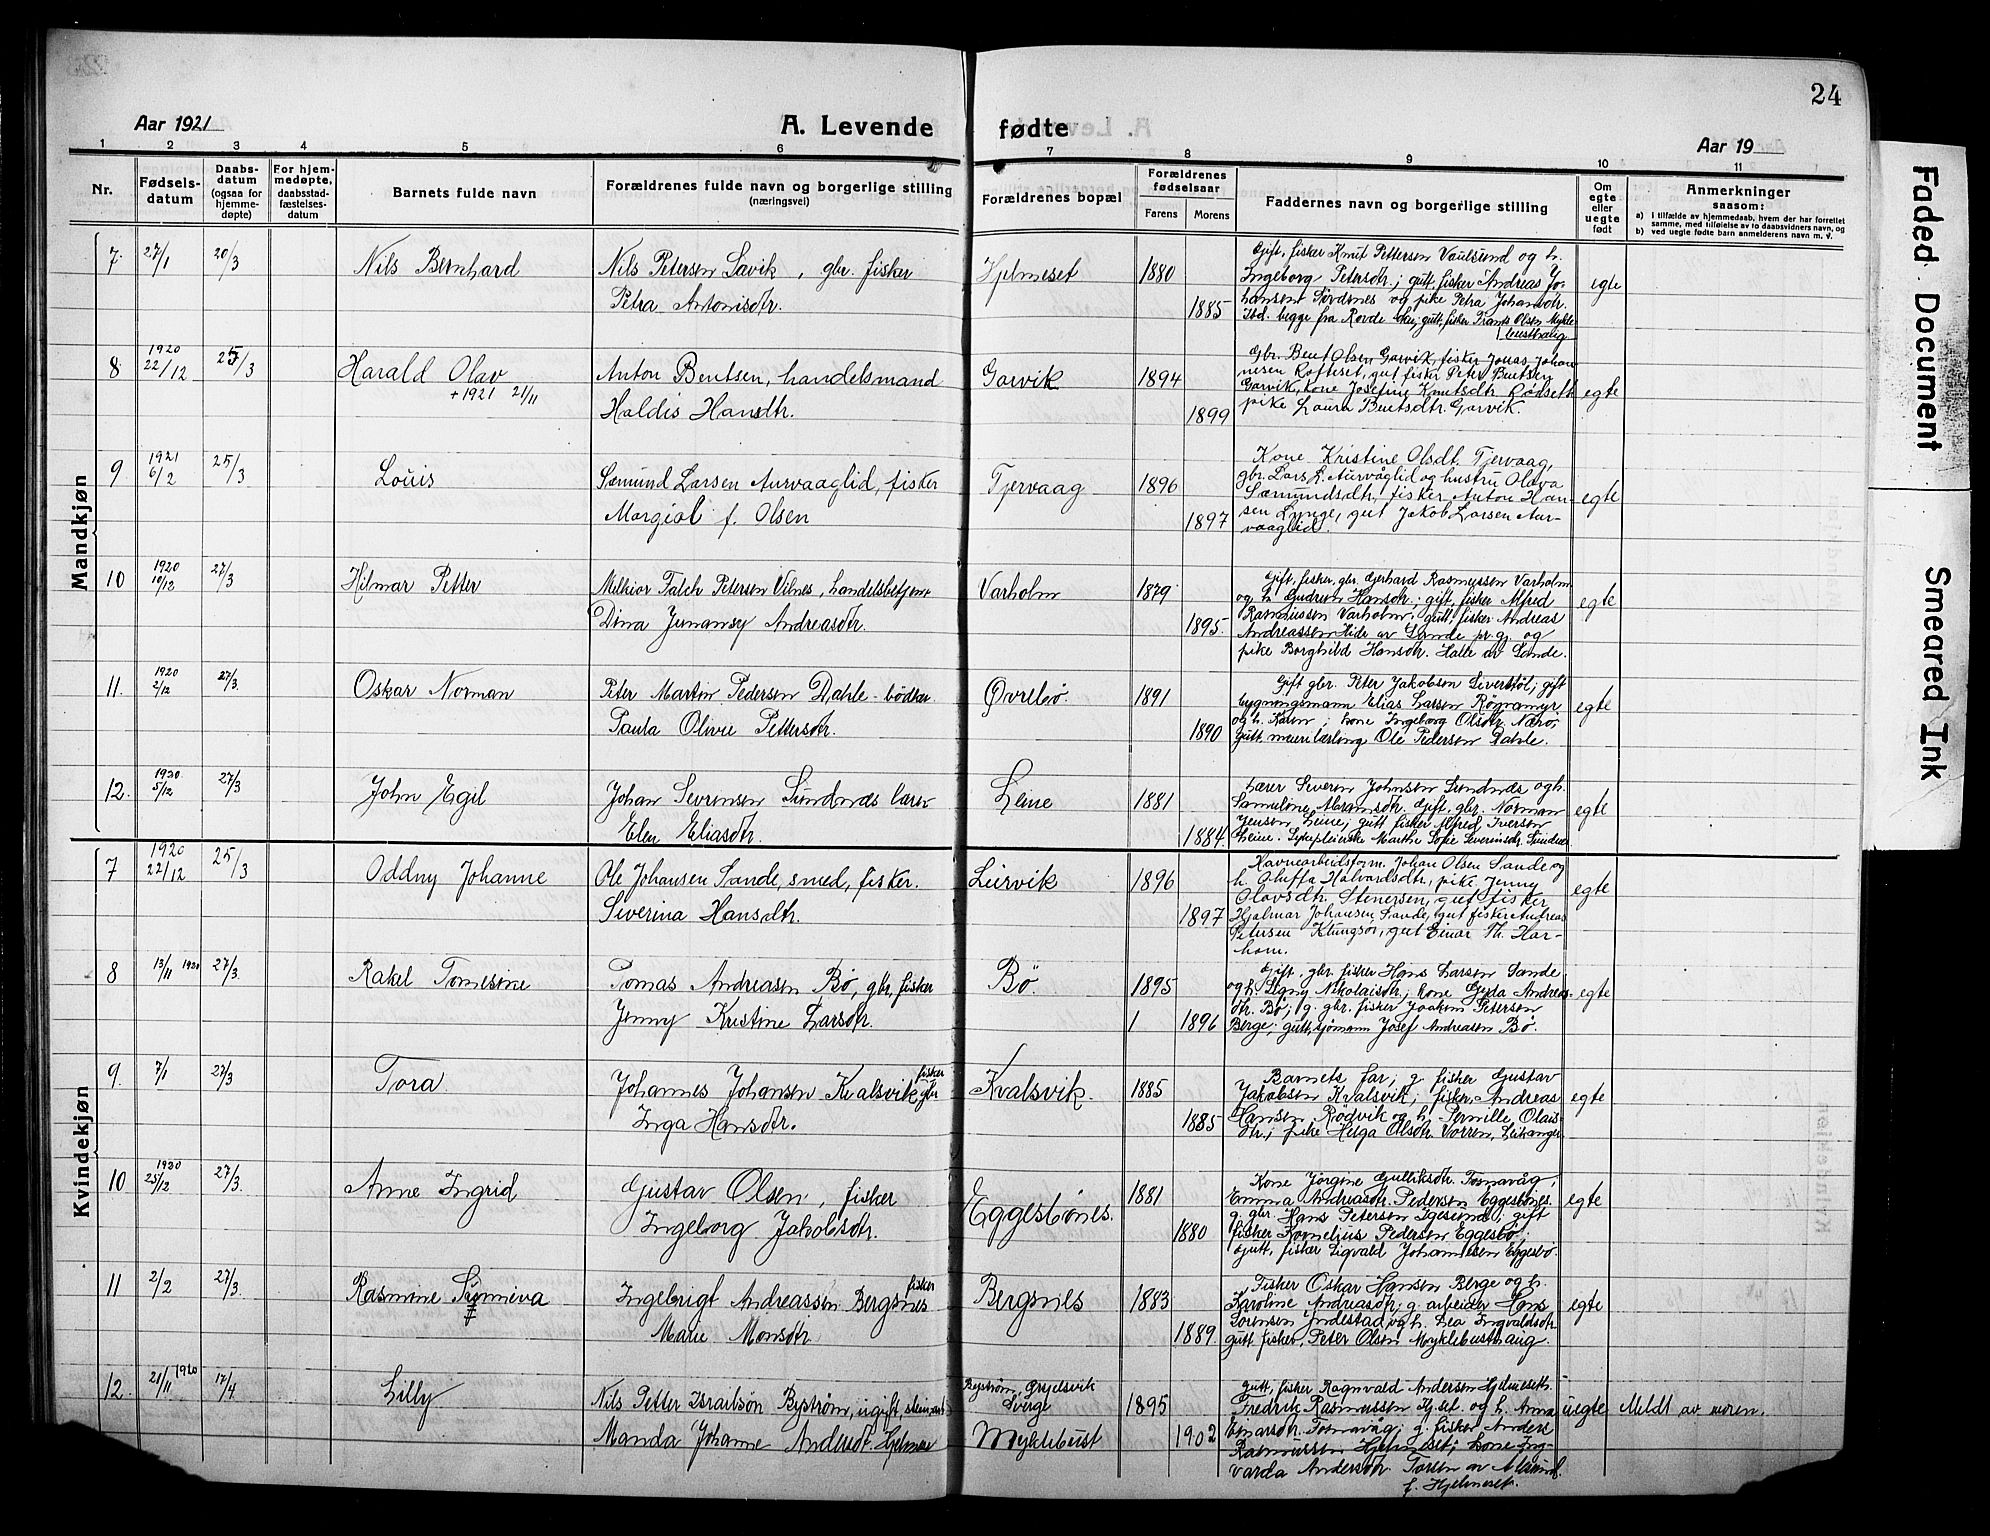 24
Aar 1921
A. Levende fødte
Aar 19
1 2 3 4 5 6 7 8 9 10 11
Nr.
Fødsels-datum
Daabs-datum (ogsaa for hjemme-døpte)
For hjem-medøpte, daabsstad-fæstelses-datum
Barnets fulde navn
Forældrenes fulde navn og borgerlige stilling (næringsvei)
Forældrenes bopæl
Forældrenes fødselsaar
Farens Morens
Faddernes navn og borgerlige stilling
Om egte eller uegte født
Anmerkninger saasom:
a) I tilfælde av hjemmedaab, hvem der har forrettet samme, med tilføielse av to daabsvidners navn, og
b) ved uegte fødte barn anmelderens navn m. v.
Mandkjøn
7. 27/1 20/3 Nils Bernhard
Nils Petersen Savik, gbr. fisker
Petra Antonisdtr.
Hjelmeset 1880 1885
Gift, fisker Knut Pettersen Vaulsund og h.
Ingeborg Petersdtr.; gutt, fisker Andreas Jo-
hansen Sørdsnes og pike Petra Johansdtr.
Ibd. begge fra Rovde gutt, fisker Frants Olsen Mykle
busthaug
egte
8 1920 22/12 25/3 Harald Olav
+1921 21/11
Anton Bentsen, handelsmand
Haldis Hansdtr.
Gorvik 1894 1899
Gbr. Bent Olsen Gorvik, fisker Jonas Johan
nesen Rofteset, gut fisker Peter Bentsen
Gorvik, kone Josefine Knutsdtr Rødseth
pike Laura Bentsdtr. Gorvik.
egte
9 1921 6/2 25/3 Louis
Sæmund Larsen Aurvaaglid, fisker
Margial f. Olsen
Tjervaag 1896 1897
Kone Kristine Olsdt. Tjervaag,
gbr. Lars L. Aurvåglid og hustru Olava
Sæmundsdtr, fisker Anton Han-
sen Lynge, gut Jakob Larsen Aur-
vaaglid.
egte
10 1920 10/12 27/3 Hilmar Petter
Melkior Falch Petersen Vilnes, handelsbetjent
Dina Jemansy Andreasdtr.
Varholm 1879 1895.
Gift, fisker, gbr. Gerhard Rasmussen Varholm
og h. Gudrun Hansdtr.; gift, fisker Alfred
Rasmussen Varholm; gutt, fisker Andreas
Andreassen Hide av Sande pr.gj. og
pike Borghild Hansdtr. Halle av Sande.
egte
11. 1920 2/12 27/3. Oskar Norman
Peter Martin Pedersen Dahle - bødker
Paula Olivie Pettersdtr.
Øvrebø 1891 1890
Gift gbr. Peter Jakobsen Sivertstøl; gift
bygningsmann Elias Larsen Røyramyr
og h. Karen; kone Ingeborg Olsdtr. Nærø;
gutt murerlærling Ole Pedersen Dahle.
egte
12. 1920 5/12 27/3 John Egil
Johan Sevrensen Sundnæs lærer
Elen Eliasdtr.
Leine 1881 1884.
Lærer Severin Johnsen Sundnæs og h.
Sameline Abramsdtr. Gift, gbr. Norman
Jensen Leine; gutt fisker Alfred Iversen
Leine. Sykepleierske Marthe Sofie Severinsdr. Sundnæs
egte
Kvindekjøn
7 1920 22/12 25/3 Oddny Johanne
Ole Johansen Sande, smed, fisker.
Severina Hansdtr.
Leirvik 1896 1897
Havnearbeidsform. Johan Olsen Sande og
h. Oluffa Halvardsdtr, pike Jenny
Olavsdtr. Stenersen, gut fisker
Hjalmar Johansen Sande, gut fisker Andreas
Petersen Klungsør, gut Einar Th. Har-
ham.
egte
8 13/11 1920 27/3. Rakel Tomesine
Tomas Andreasen Bø, gbr, fisker
Jenny Kristine Larsdtr.
Bø. 1895 1896
Gift. gbr. fisker Hans Larsen Sande
og h. Signy Nikolaisdtr.; kone Gyda Andreas-
dtr. Bø; g. gbr. fisker Joakim Petersen
Berge; gutt, sjømann Josef Andreasen Bø.
egte
9. 7/1 27/3 Tora.
Johannes Johansen Kvalsvik fisker gbr
Inga Hansdtr.
Kvalsvik. 1885 1885
Barnets far; g. fisker Gustav
Jakobsen Kvalsvik; fisker Andreas
Hansen Rødvik og h. Pernille Olais-
dtr.; pike Helga Olsdtr. Vorren, Leikanger
egte
10 1920 25/12 27/3. Anne Ingrid
Gustav Olsen, fisker
Ingeborg Jakobsdtr.
Eggesbönes. 1881 1880
Kone Jørgine Gulliksdtr. Fosnavåg;
Emma Andreasdtr. Pedersen Eggesbönes.
g. gbr. Hans Petersen Igesund; gift
fisker Kornelius Pedersen Eggesbø;
Gutt, fisker Sigvald Johannesen Eggesbø.
egte
11 2/2 27/3. Rasmine Synneva
Ingebrigt Andreassen Bergsnes fisker
Marie Monsdtr.
Bergsnes 1883 1889.
Fisker Oskar Hansen Berge og h.
Karoline Andreasdtr; g. arbeider Hans
Sørensen Indestad og h. Lea Ingvaldsdtr
gutt, fisker, Peter Olsen Myklebusthaug
egte
12. 21/11 1920 17/4 Lilly
Nils Petter Israelsön Byström, ugift, steinarb
Manda Johanne Andersdtr. Hjelmeset
Byström, Sverge
Myklebust
1895 1902
Gutt, fisker Ragnvald Andersen Hjelmeseth.
Fredrik Rasmussen Hj.set. og h. Anna
Einarsdtr. Fosnavåg; g. fisker Anders
Rasmussen Hjelmeset; kone Ing-
varda Andersdtr. Torsen av Ålesund
f. Hjelmeset.
uegte Meldt av moren.
Faded Document
Smeared Ink